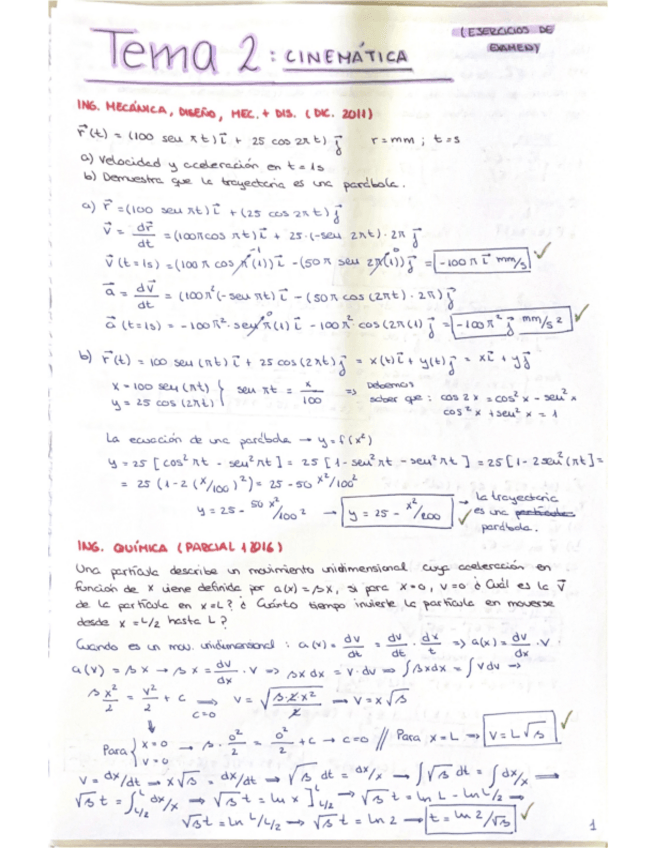 Tema 2: CINEMÁTICA
(EJERCICIOS DE
EXAMEN)
ING. MECÁNICA, DISEÑO, MEC. + DIS. (DIC. 2011)
r⃗(t) = (100 sen πt) i⃗ + 25 cos 2πt) j⃗   r = mm ; t = s
a) Velocidad y aceleración en t = 1s
b) Demuestra que la trayectoria es una parábola.
a) r⃗ = (100 sen πt) i⃗ + (25 cos 2πt) j⃗
v⃗ = dr⃗/dt = (100π cos πt) i⃗ + 25·(-sen 2πt)·2π j⃗
v⃗ (t=1s) = (100π cos π(1)) i⃗ - (50π sen 2π(1)) j⃗ = -100π i⃗ mm/s
a⃗ = dv⃗/dt = (100π²(-sen πt) i⃗ - (50π cos (2πt)·2π) j⃗
a⃗ (t=1s) = -100π²·sen π(1) i⃗ - 100π² cos (2π(1) j⃗ = -100π² j⃗ mm/s²
b) r⃗(t) = 100 sen (πt) i⃗ + 25 cos (2πt) j⃗ = x(t) i⃗ + y(t) j⃗ = x i⃗ + y j⃗
x = 100 sen (πt) } sen πt = x/100 => Debemos
y = 25 cos (2πt) saber que : cos 2x = cos² x - sen² x
cos² x + sen² x = 1
La ecuación de una parábola → y = f(x²)
y = 25 [cos² πt - sen² πt] = 25 [1 - sen² πt - sen² πt] = 25 [1 - 2 sen² (πt] =
= 25 (1 - 2 (x/100)²) = 25 - 50 x²/100²
y = 25 - 50 x²/100² → y = 25 - x²/200 → la trayectoria
es una partícula
parábola.
ING. QUÍMICA (PARCIAL 1 2016)
Una partícula describe un movimiento unidimensional cuya aceleración en
función de x viene definida por a(x) = βx, si para x=0, v=0 ¿Cuál es la v⃗
de la partícula en x=L? ¿Cuánto tiempo invierte la partícula en moverse
desde x = L/2 hasta L?
Cuando es un mov. unidimensional : a(v) = dv/dt = dv/dt · dx/t => a(x) = dv/dx · v
a(v) = βx → βx = dv/dx · v => βx dx = v·dv => ∫βxdx = ∫vdv =>
β x²/2 = v²/2 + c => c=0 v = √(β·2x²/2) → v = x√β
Para { x=0 → β · 0²/2 = 0²/2 + c → c=0 // Para x=L → V = L√β
v=0
v = dx/dt → x√β = dx/dt → √β dt = dx/x → ∫√β dt = ∫dx/x →
√β t = ∫L/2 L dx/x → √β t = ln x ] L L/2 → √β t = ln L - ln L/2 →
√β t = ln L/L/2 → √β t = ln 2 → t = ln 2/√β
1